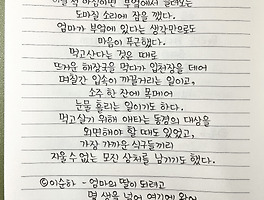 도마질 소리에 잠을 깼다.
엄마가 부엌에 있다는 생각만으로도
마음이 푸근했다.
먹고산다는 것은 때로
뜨거운 해장국을 먹다가 입천장을 데어
며칠간 입속이 까끌거리는 일이고,
소주 한 잔에 목메어
눈물 흘리는 일이기도 하다.
먹고살기 위해 애타는 동경의 대상을
외면해야 할 때도 있었고,
가장 가까운 식구들끼리
지울 수 없는 모진 상처를 남기기도 했다.
ⓒ이순하 - 엄마의 딸이 되려고
몇 생을 넘어 여기에 왔어